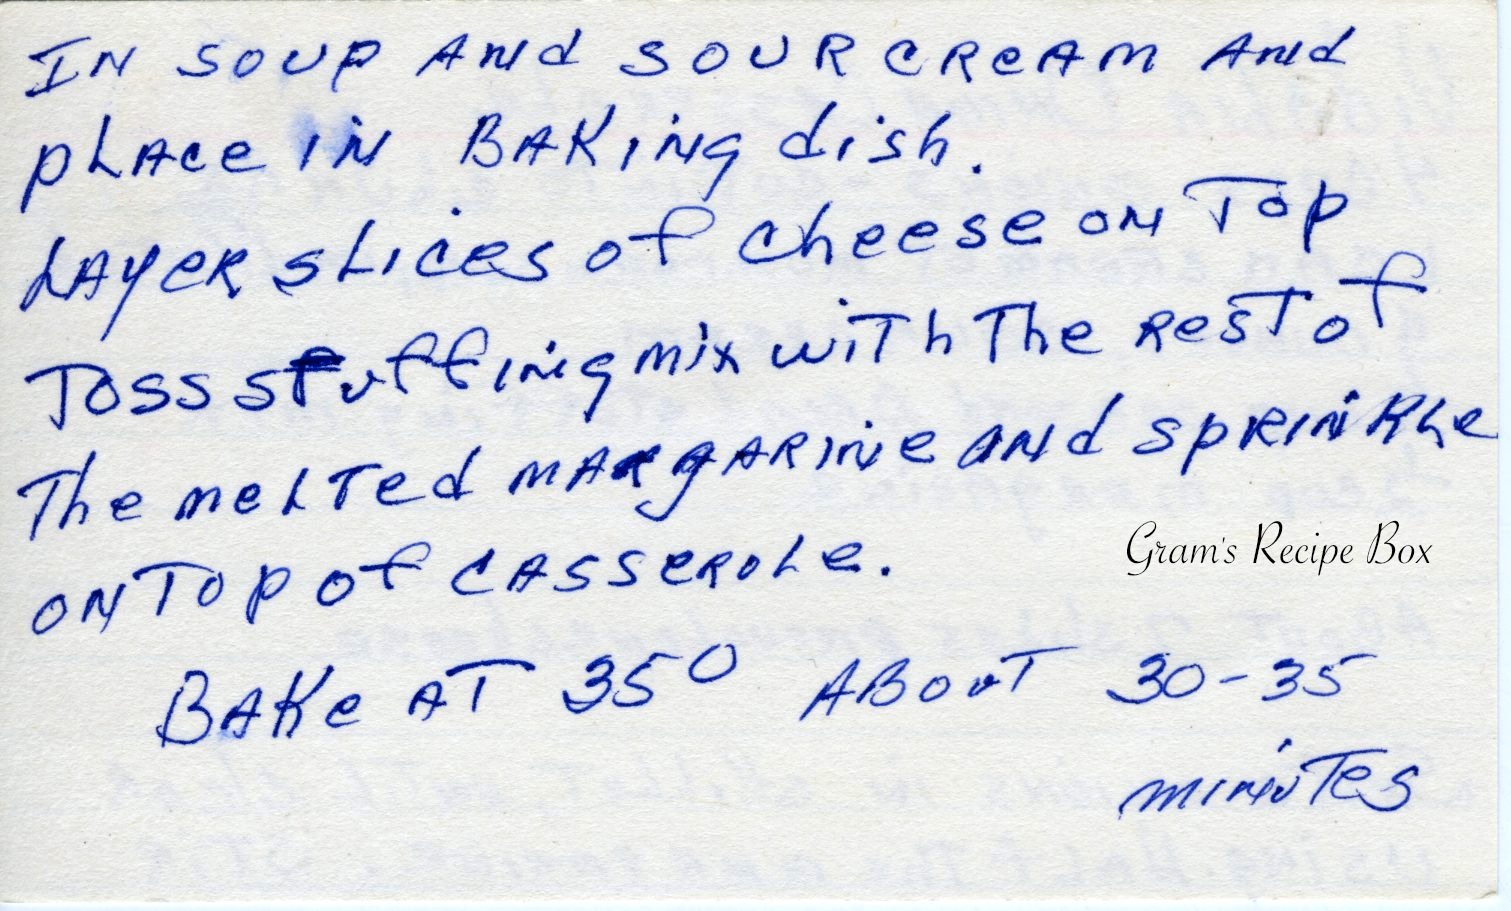 IN SOUP ANd SOUR CREAM ANd
pLACe IN BAKING dish.
LAYER SLICES of Cheese ON Top
Toss STuffING mix wiTh The REST of
The meLTed MARGARINE ANd SPRINKLe
ON Top of CASSEROLe.
BAKe AT 350 ABouT 30-35
miNuTes
Gram's Recipe Box